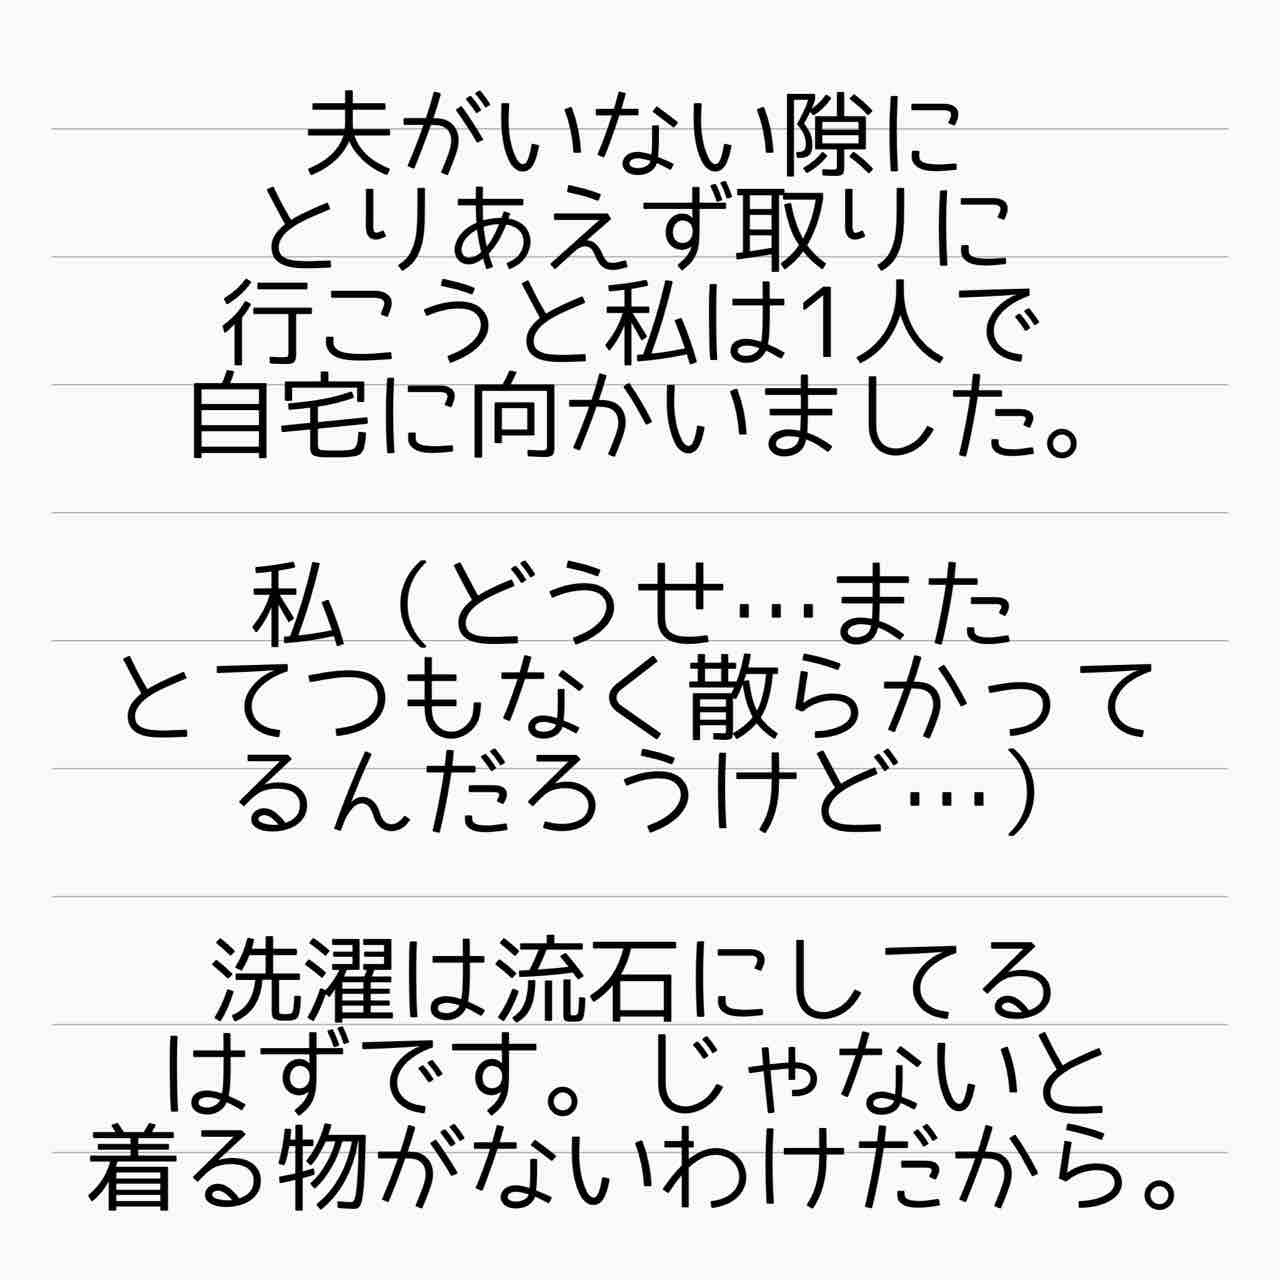 夫がいない隙に
とりあえず取りに
行こうと私は1人で
自宅に向かいました。
私（どうせ…また
とてつもなく散らかって
るんだろうけど…）
洗濯は流石にしてる
はずです。じゃないと
着る物がないわけだから。